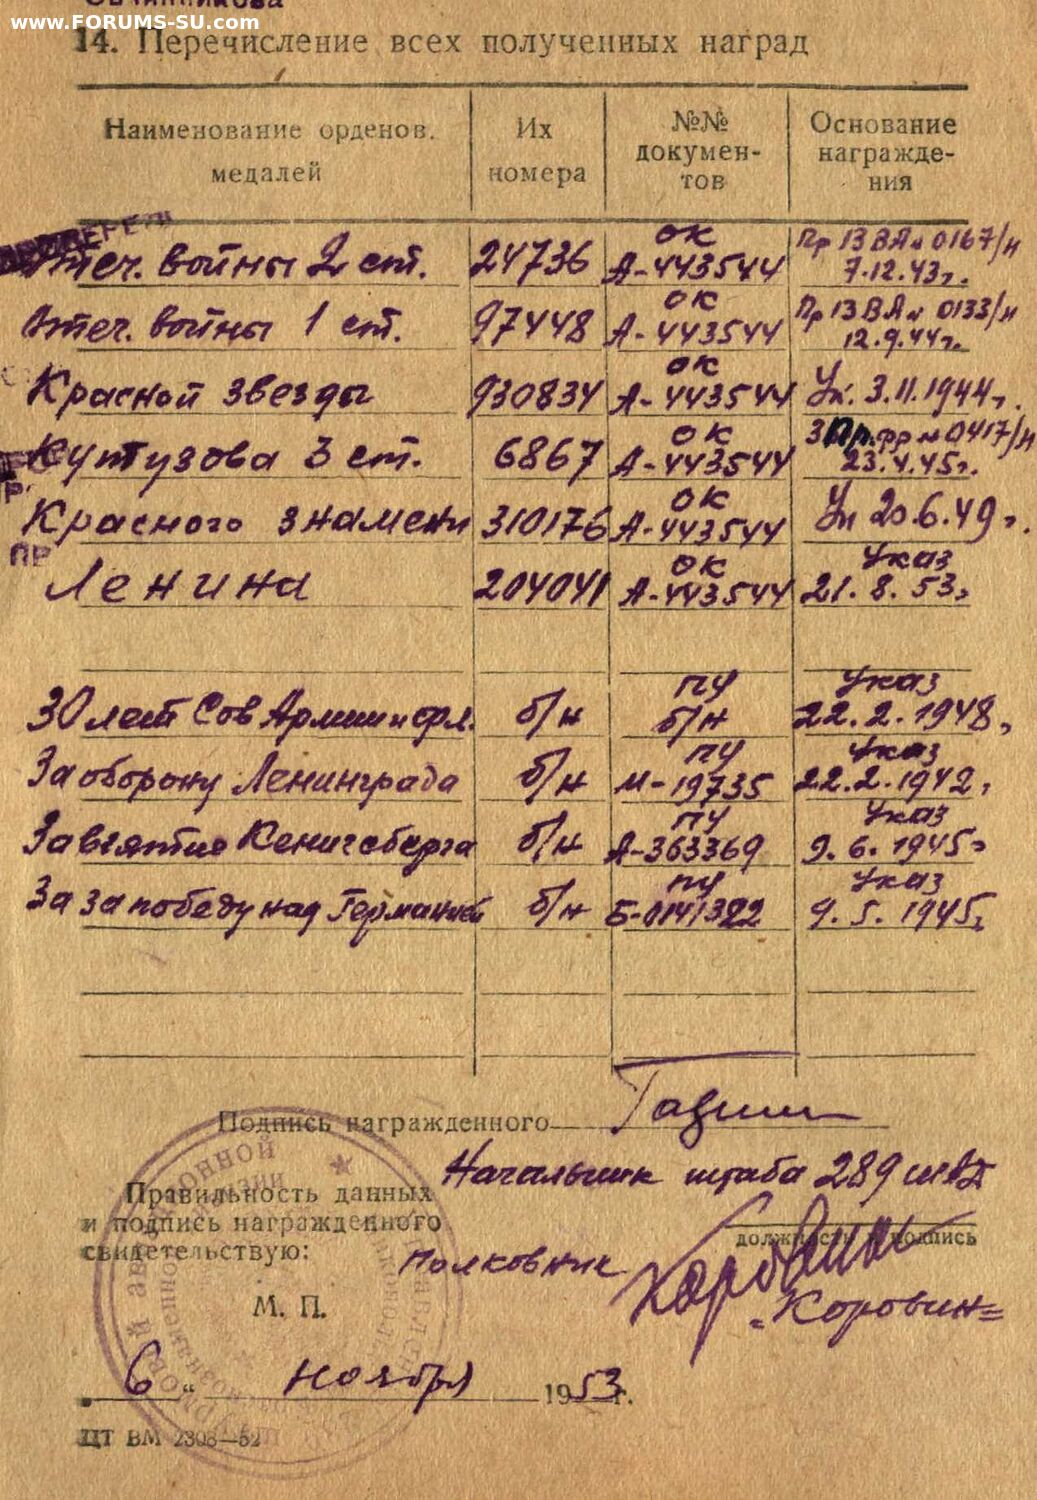 www.FORUMS-SU.com
14. Перечисление всех полученных наград
Наименование орденов, медалей
Их номера
№№ докумен-тов
Основание награжде-ния
Отеч. войны 2 ст. 24736 ОК А-443544 Пр 13 ВА № 0167/н 7.12.43г.
Отеч. войны 1 ст. 97448 ОК А-443544 Пр 13 ВА № 0133/н 12.9.44г.
Красной звезды 930834 ОК А-443544 Ук. 3.11.1944г.
Кутузова 3 ст. 6867 ОК А-443544 3 Пр. фр № 0417/н 23.4.45г.
Красного знамени 310176 ОК А-443544 Ук 20.6.49г.
Ленина 204041 ОК А-443544 Указ 21.8.53г
30 лет Сов Армии и фл. б/н ПУ б/н Указ 22.2.1948г
За оборону Ленинграда б/н ПУ М-19735 Указ 22.2.1942г
За взятие Кенигсберга б/н ПУ А-363369 Указ 9.6.1945г
За за победу над Германией б/н ПУ Б-0141322 Указ 9.5.1945г
Подпись награжденного
Начальник штаба 289 шап
Правильность данных
и подпись награжденного
должность и подпись
свидетельствую:
Полковник
М. П.
"Коровин"
"6" ноября 1953 г.
ЦТ ВМ 2308—52